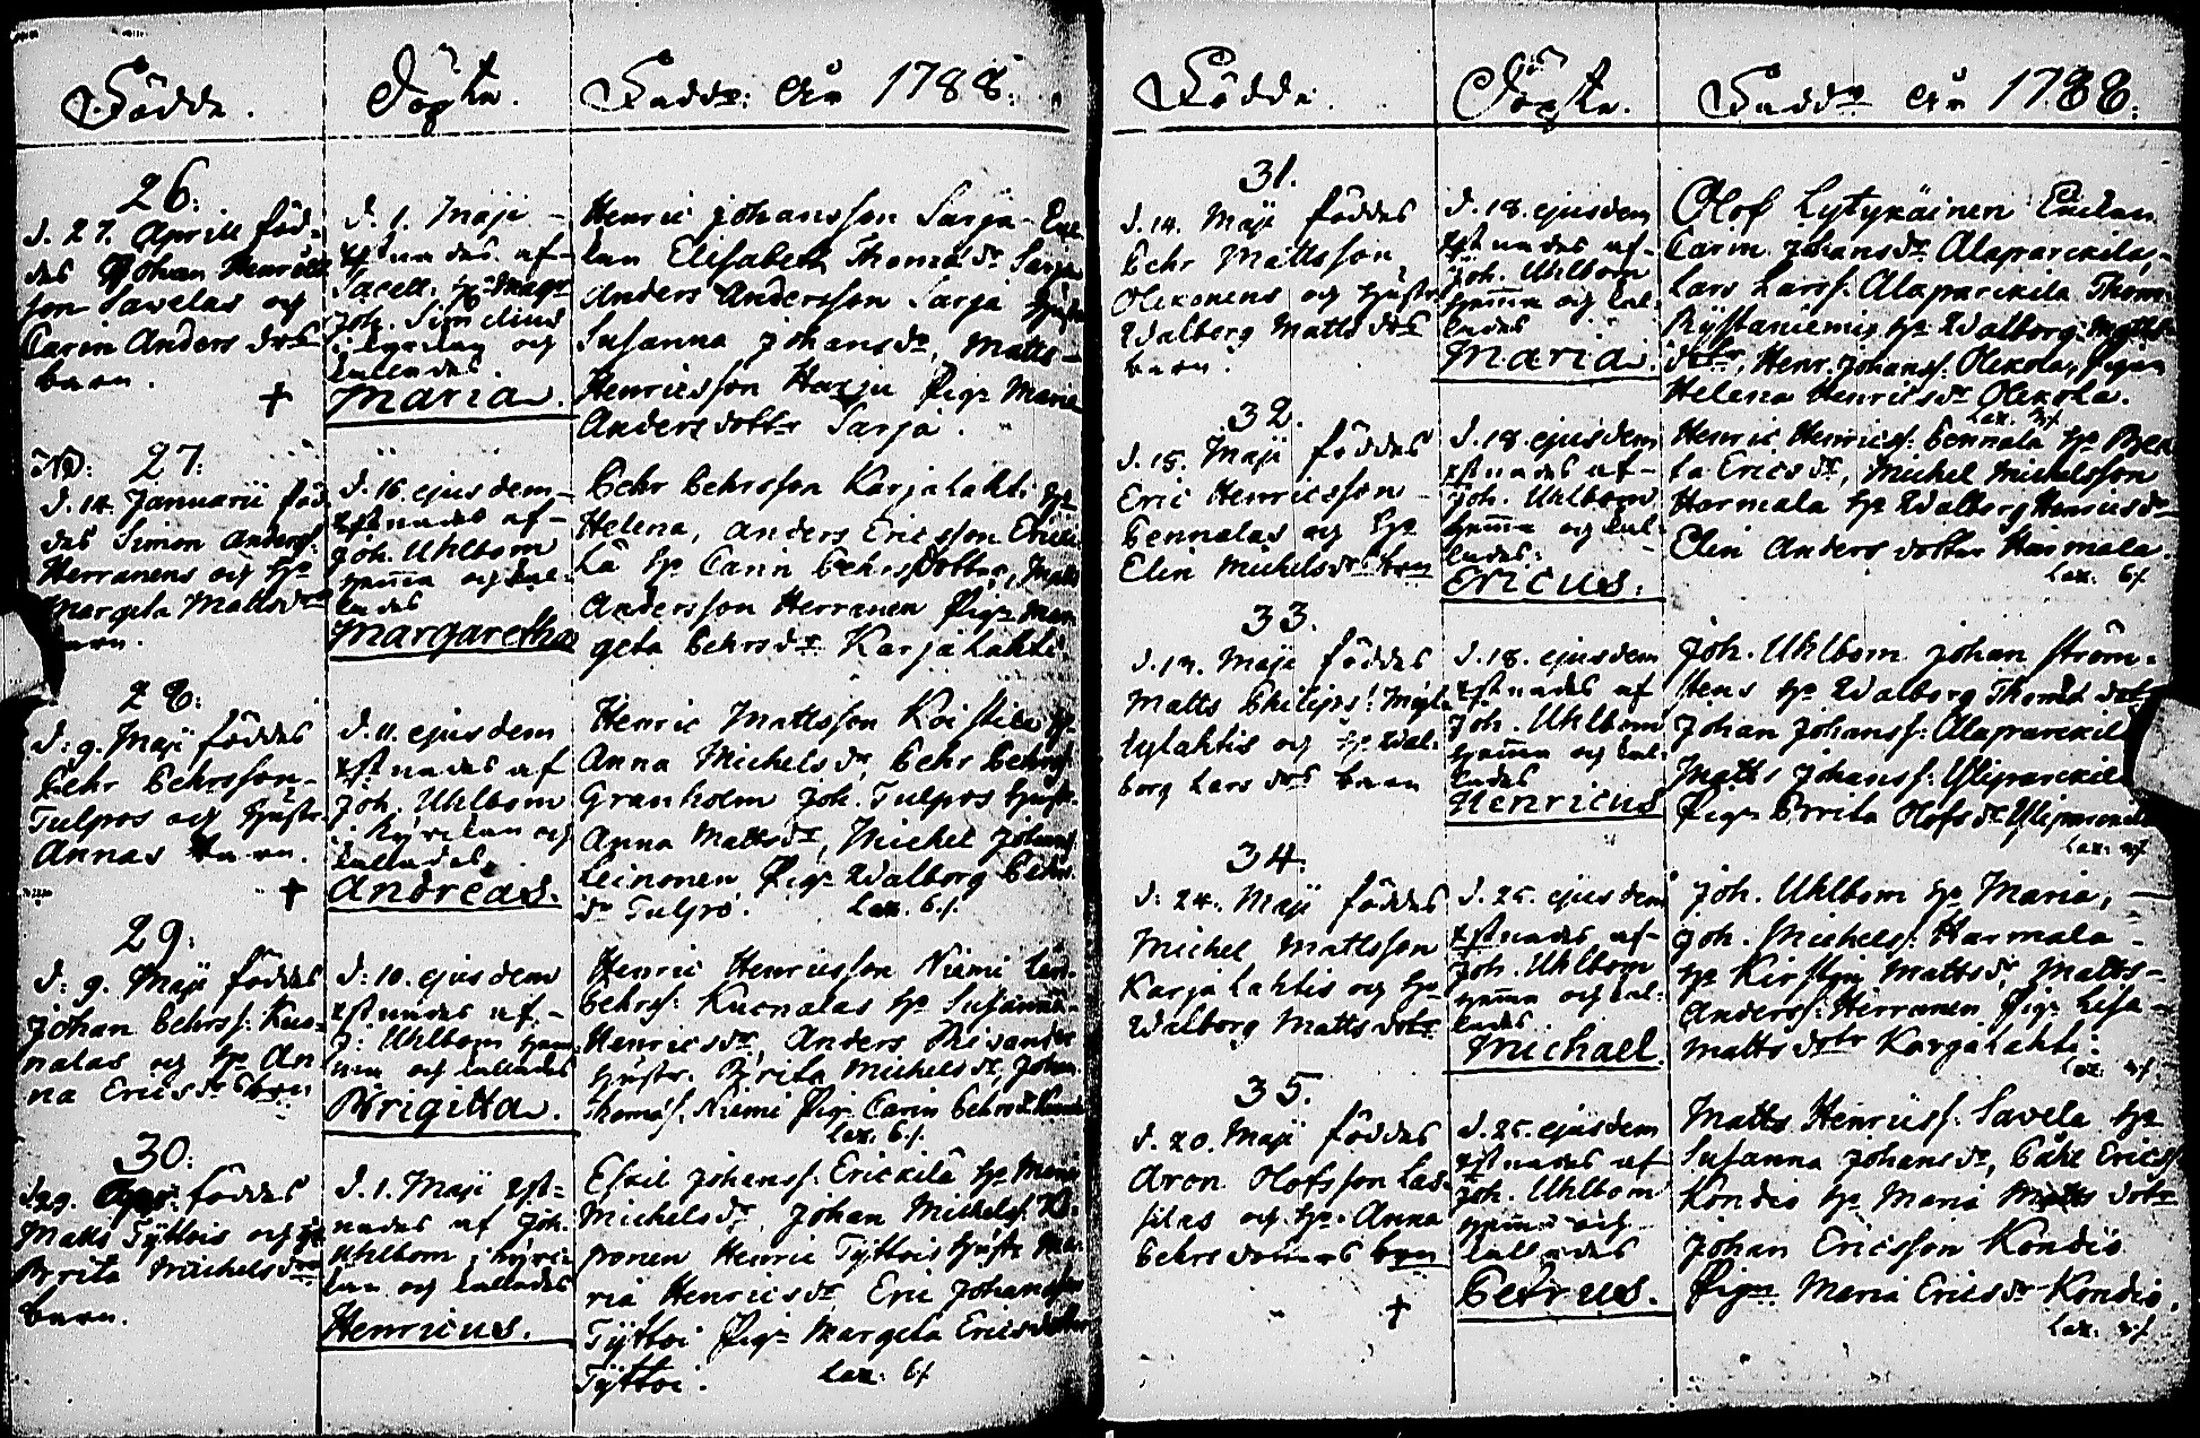 Födde.
Döpte.
Fadd: År 1788.
26.
d. 27. Aprill föd-
des Johan Henrics
son Savelas och
Carin Anders drs
barn.
+
d. 1. Maji
xstnades af
Sacell. H:r Mag:r
Joh. Simelius
i kyrckan och
kallades.
Maria.
Henric Johansson Sarja
kan Elisabeth Thomæ dr Sarja
Anders Andersson Sarja hustr
Susanna Johans dr, Matts
Henricsson Harju Pig. Maria
Anders dotter Sarja.
N: 27.
d. 14. Januarii föd
des Simon Anderss:
Herranens och H:o
Margeta Matts drs
barn.
d. 16. ejusdem
xstnades af
Joh. Uhlbom
hemma och kal-
lades
Margaretha
Pehr Pehrsson Karjalahti H:o
Helena, Anders Ericsson Ericki
lä H:o Carin Pehrsdotter, Matts
Andersson Herranen Pig. Mar
geta Pehrs dr Karjalahti.
28.
d. 9. Maji föddes
Pehr Pehrsson
Tulpos och hustr
Annas barn.
+
d. 11. ejusdem
xstnades af
Joh. Uhlbom
i kyrckan och
kallades
Andreas.
Henric Mattsson Koistila H:o
Anna Michels dr, Pehr Pehrss
Granholm Joh. Tulpos hustr.
Anna Matts dr, Michel Johans
Leinonen Pig. Walborg Pehrs
dr Tulpo. Lax. 6./.
29.
d. 9. Maji föddes
Johan Pehrss: Kuo-
nalas och H:o An
na Erics drs barn
d. 10. ejusdem
xstnades af
J: Uhlbom hem-
ma och kallades
Brigitta.
Henric Henricsson Niemi Lars
Pehrss: Kuonalas H:o Susanna
Henrics dr, Anders
hustr. Brita Michels dr, Johan
Thomæs. Niemi Pig. Carin Pehrs dr
Lax. 6./.
30.
d. 29. Apr. föddes
Matts Tyttois och H:o
Brita Michels drs
barn.
d. 1. Maji xst-
nades af Joh.
Uhlbom i kyrc-
kan och kallades
Henricus.
Eskil Johanss. Erickilä H:o Maria
Michels dr, Johan Michelss. Ki-
ponen Henric Tyttois hustr Ma-
ria Henrics dr Eric Johansson
Tyttoi Pig. Margeta Ericsdotter
Tyttoi. Lax. 6./
Födde.
Döpte.
Fadd: År 1788.
31.
d. 14. Maji föddes
Pehr Mattsson
Olckonens och hustr
Walborg Matts drs
barn.
d. 18. ejusdem
xstnades af
Joh. Uhlbom
hemma och kal-
lades
Maria.
Olof Lytykäinen Enckan
Carin Johans dr Alaparckila,
Lars Larss. Alaparckila Thom.
Rystaniemis H:o Walborg Matts
dotr, Henr. Johanss. Olckola, Pigan
Helena Henrics dr Olckola.
Lax. 3./
32.
d. 15. Maji föddes
Eric Henricsson
Pennalas och H:o
Elin Michels drs barn
d. 18. ejusdem
xstnades af
Joh. Uhlbom
hemma och kal-
lades.
Ericus.
Henric Henricss. Pennala H:o Bea
ta Erics dr, Michel Michelsson
Harmala H:o Walborg Henrics dr
Elin Anders dotter Harmala.
Lax. 6./
33.
d. 17. Maji föddes
Matts Philips:
lylahtis och H:o Wal-
borg Lars drs barn
d. 18. ejusdem
xstnades af
Joh. Uhlbom
hemma och kal-
lades
Henricus
Joh. Uhlbom Johan Ström-
stens H:o Walborg Thomæ dotr
Johan Johanss. Alaparckila
Matts Johanss. Yliparckila
Pig. Brita Olofs dr Yliparckila
Lax. 3./
34.
d. 24. Maji föddes
Michel Mattsson
Karjalahtis och H:o
Walborg Matts dotr
d. 25. ejusdem
xstnades af
Joh. Uhlbom
hemma och kal-
lades.
Michael.
Joh. Uhlbom H:o Maria,
Joh. Michelss. Harmala
H:o Kirstin Matts dr, Matts
Anderss. Herranen Pig. Lisa
Matts dotr Karjalahti.
Lax. 3./.
35.
d. 20. Maji föddes
Aron Olofsson Las-
silas och H:o Anna
Pehrs dotters barn
+
d. 25. ejusdem
xstnades af
Joh. Uhlbom
hemma och
kallades
Petrus.
Matts Henricss. Savela H:o
Susanna Johans dr, Påhl Ericss
Kondio H:o Maria Matts dotr
Johan Ericsson Kondio
Pigan Maria Erics dr Kondio.
Lax. 3./